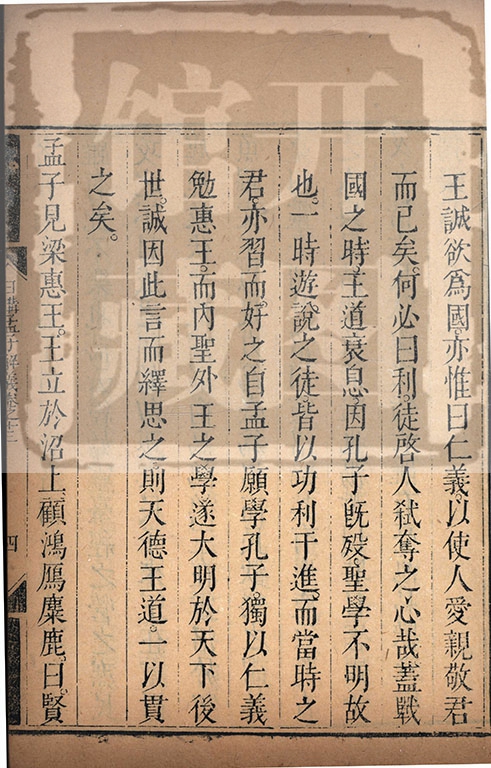 王誠欲爲國。亦惟曰仁義。以使人愛親敬君
而已矣。何必曰利。徒啓人弑奪之心哉。蓋戰
國之時。王道衰息。因孔子旣歿。聖學不明。故
也。一時遊說之徒。皆以功利干進。而當時之
君。亦習而好之。自孟子願學孔子。獨以仁義
勉惠王。而內聖外王之學。遂大明於天下後
世。誠因此言而繹思之。則天德王道。一以貫
之矣。
孟子見梁惠王。王立於沼上。顧鴻鴈麋鹿。曰。賢
日講孟子解義卷之十
四